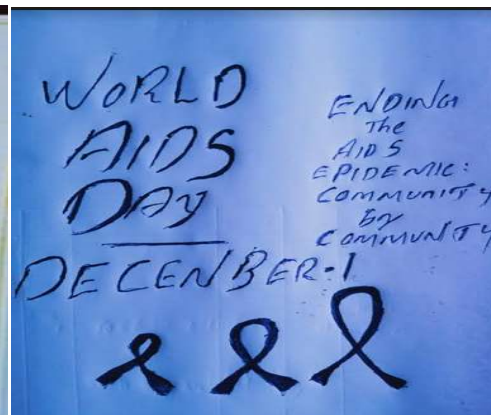 WORLD
AIDS
DAY
DECENBER-1
ENDING
The
AIDS
EPIDEMIC:
COMMUNITY
By
COMMUNITY